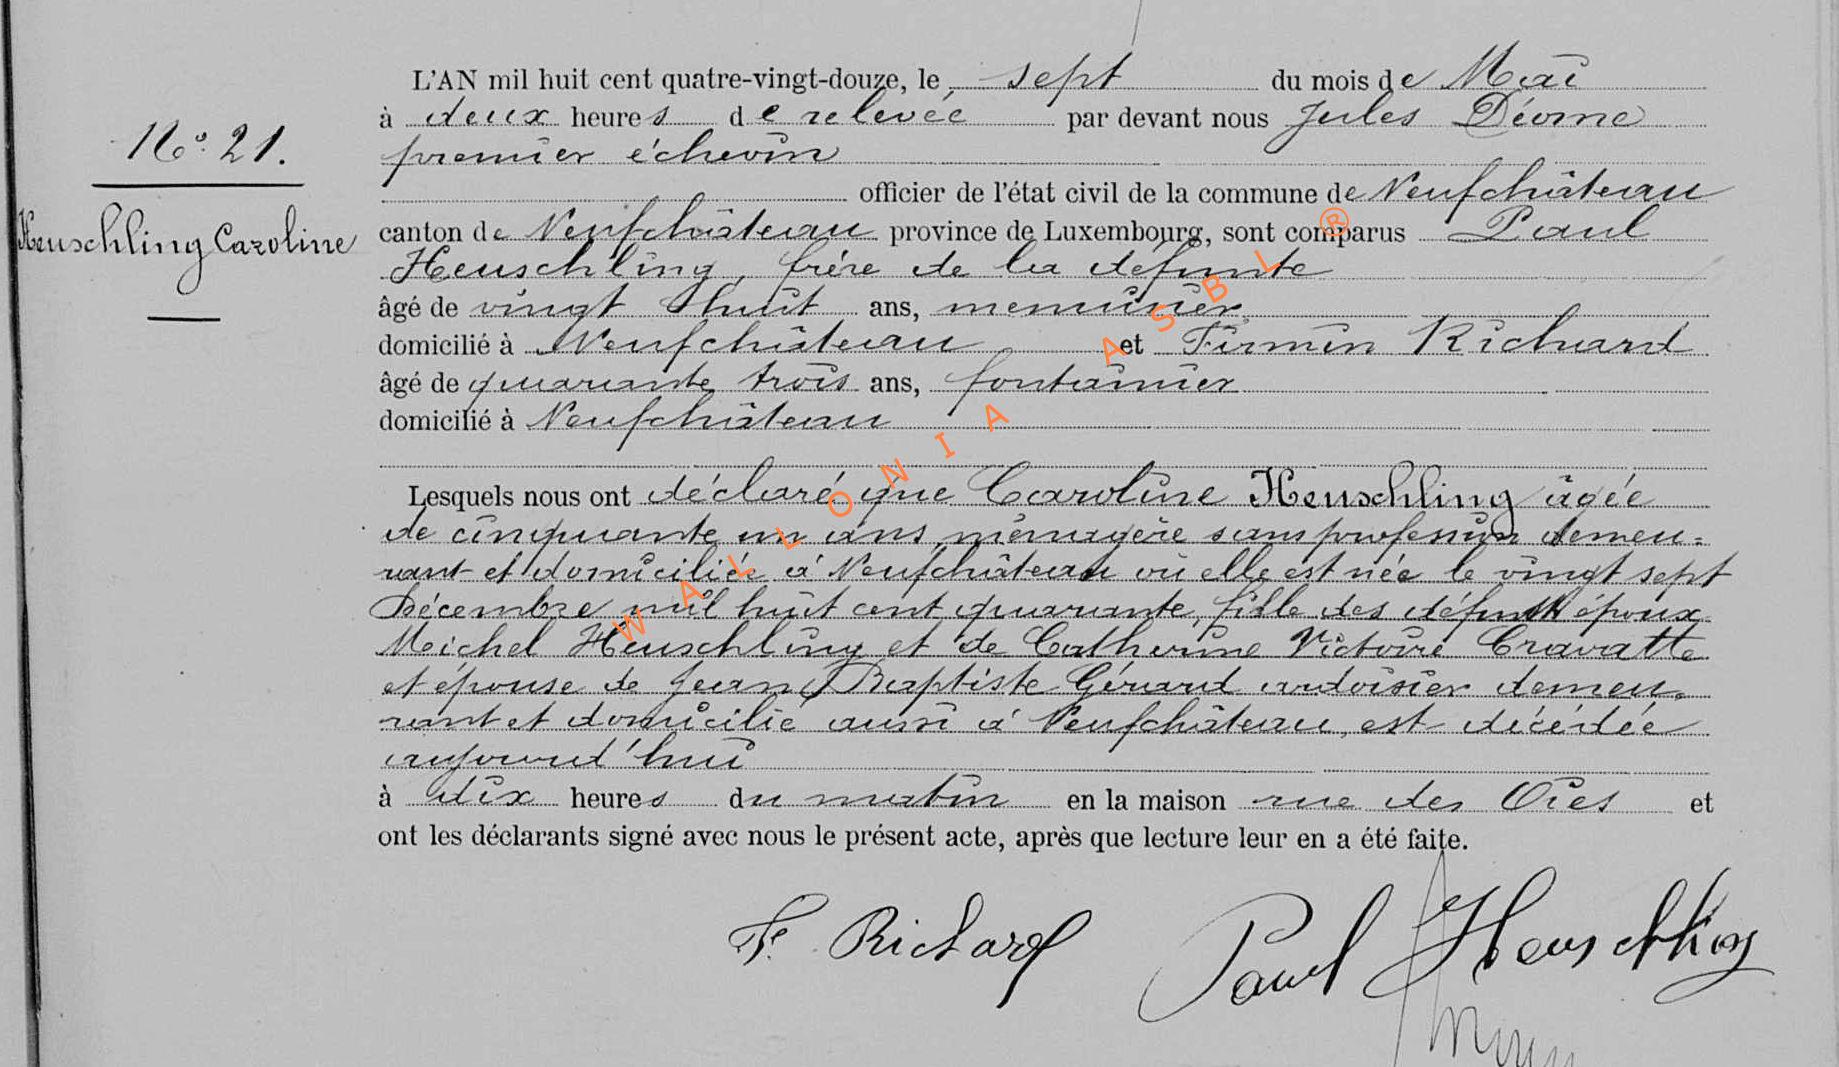 L'AN mil huit cent quatre-vingt-douze, le sept du mois de Mai
à deux heures de relevée par devant nous Jules Déome
N° 21.
premier échevin
officier de l'état civil de la commune de Neufchâteau
Heuschling Caroline
canton de Neufchâteau province de Luxembourg, sont comparus Paul
Heuschling, frère de la défunte
âgé de vingt huit ans, menuisier
domicilié à Neufchâteau et Firmin Richard
âgé de quarante trois ans, fontainier
domicilié à Neufchâteau
Lesquels nous ont déclaré que Caroline Heuschling âgée
de cinquante un ans, ménagère sans profession demeu=
rant et domiciliée à Neufchâteau où elle est née le vingt sept
Décembre mil huit cent quarante, fille des défunts époux
Michel Heuschling et de Catherine Victoire Cravatte
et épouse de Jean Baptiste Gérard ardoisier demeu=
rant et domicilié aussi à Neufchâteau, est décédée
aujourd'hui
à dix heures du matin en la maison rue des Oies et
ont les déclarants signé avec nous le présent acte, après que lecture leur en a été faite.
F. Richard Paul Heuschling
WALLONIA ASBL ®